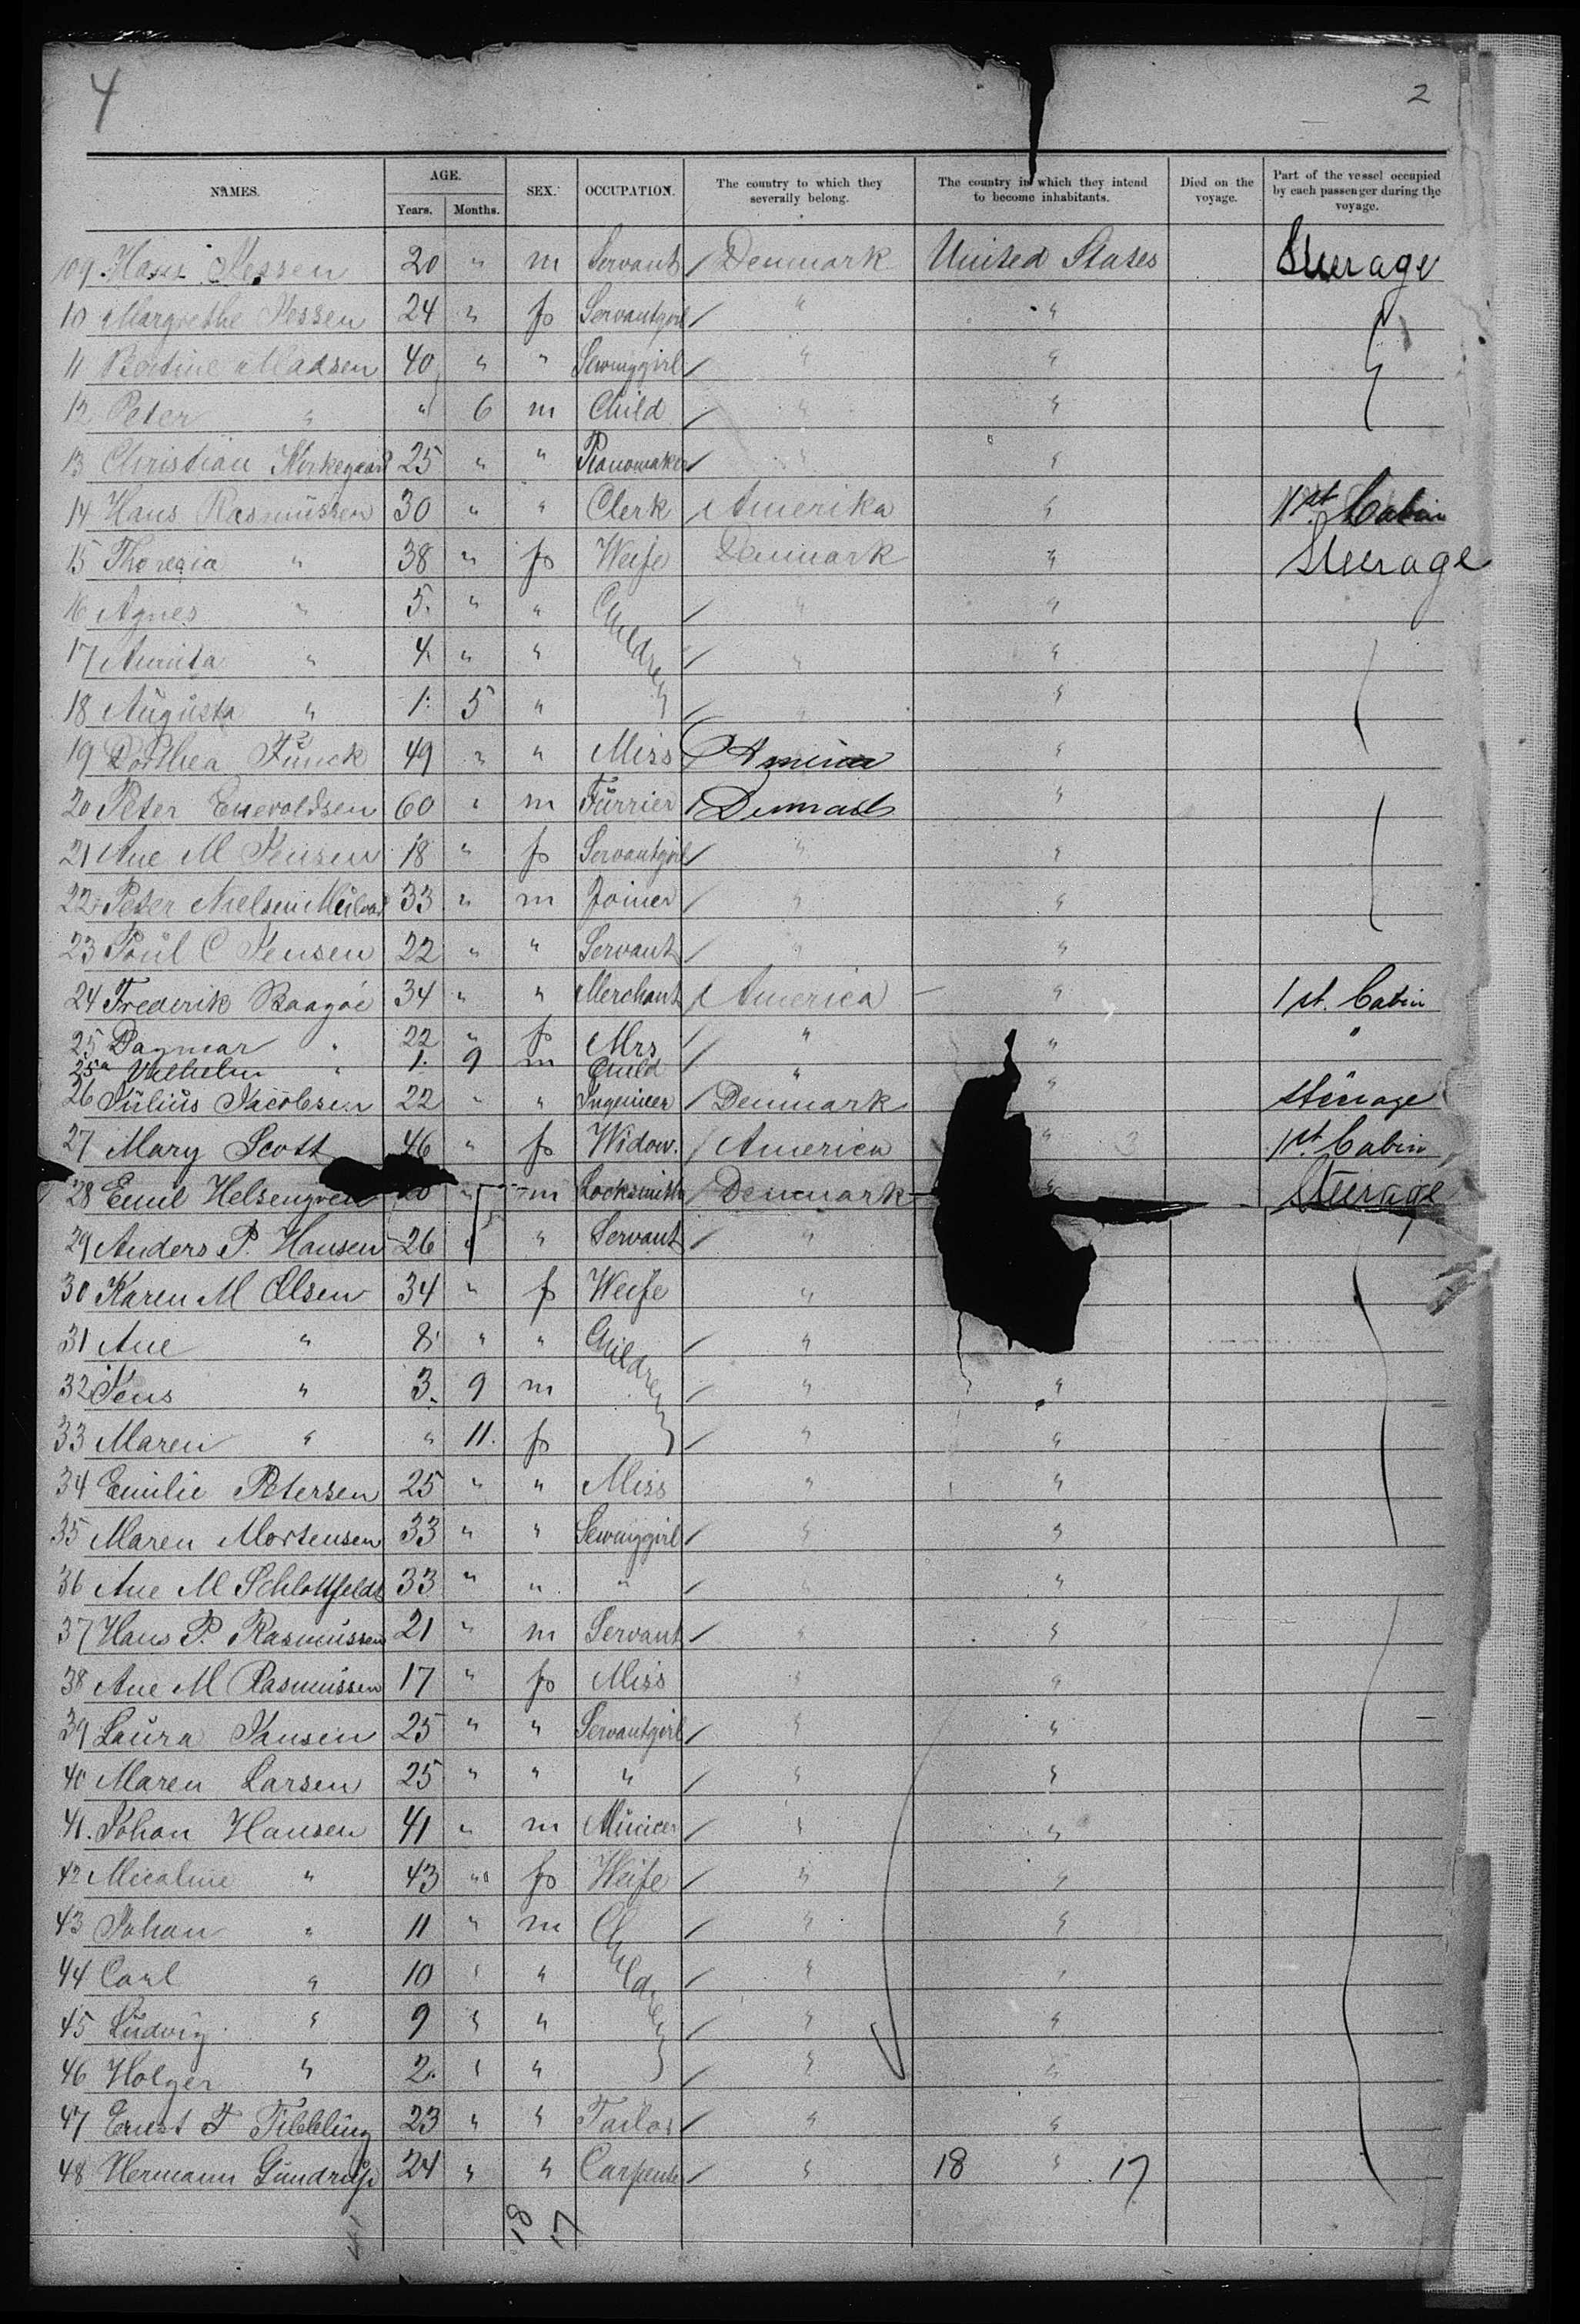 4
2
NAMES. AGE. SEX. OCCUPATION. The country to which they severally belong. The country in which they intend to become inhabitants. Died on the voyage. Part of the vessel occupied by each passenger during the voyage.
Years. Months.
109 Hans Jessen 20 " m Servant / Denmark United States Steerage
10 Margrethe Jessen 24 " f Servantgirl / " "
11 Bertine Madsen 40 " " Sewinggirl / " "
12 Peter " " 6 m Child / " "
13 Christian Kirkegaard 25 " " Pianomaker / " "
14 Hans Rasmussen 30 " " Clerk / Amerika " 1st. Cabin
15 Thoregia " 38 " f Weife Denmark " Steerage
16 Agnes " 5. " " Children / " "
17 " 4. " " / " "
18 Augusta " 1. 5 " / " "
19 Dorthea Funck 49 " " Miss America "
20 Peter Enevoldsen 60 " m Furrier / Denmark "
21 Ane M Jensen 18 " f Servantgirl / " "
22 Peter Nielsen 33 " m Joiner / " "
23 Poul C Jensen 22 " " Servant / " "
24 Frederik Baagöe 34 " " Merchant / America " 1st. Cabin
25 Dagmar " 22 " f Mrs / " " "
25a Vilhelm " 1. 9 m Child / "
26 Julius Jacobsen 22 " " Ingenieer / Denmark " Steerage
27 Mary Scott 46 " f Widow. / America " 1st. Cabin
28 Emil " m Locksmith / Denmark " Steerage
29 Anders P. Hansen 26 " " Servant / "
30 Karen M Olsen 34 " f Weife "
31 Ane " 8. " " Children / "
32 Jens " 3. 9 m / " "
33 Maren " " 11. f / " "
34 Emilie Petersen 25 " " Miss " "
35 Maren Mortensen 33 " " Sewinggirl / " "
36 Ane M Schlottfeldt 33 " " " / " "
37 Hans P. Rasmussen 21 " m Servant / " "
38 Ane M Rasmussen 17 " f Miss " "
39 Laura Jansen 25 " " Servantgirl / " "
40 Maren Larsen 25 " " " / " "
41. Johan Hansen 41 " m / " "
42 Micoline " 43 " f Weife / " "
43 Johan " 11 " m Children / " "
44 Carl " 10 " " / " "
45 Ludvig " 9 " " / " "
46 Holger " 2. " " / " "
47 Ernst F Fibbling 23 " " Tailor / " "
48 Hermann Gundrup 24 " " Carpenter / " 18 " 17
18 17